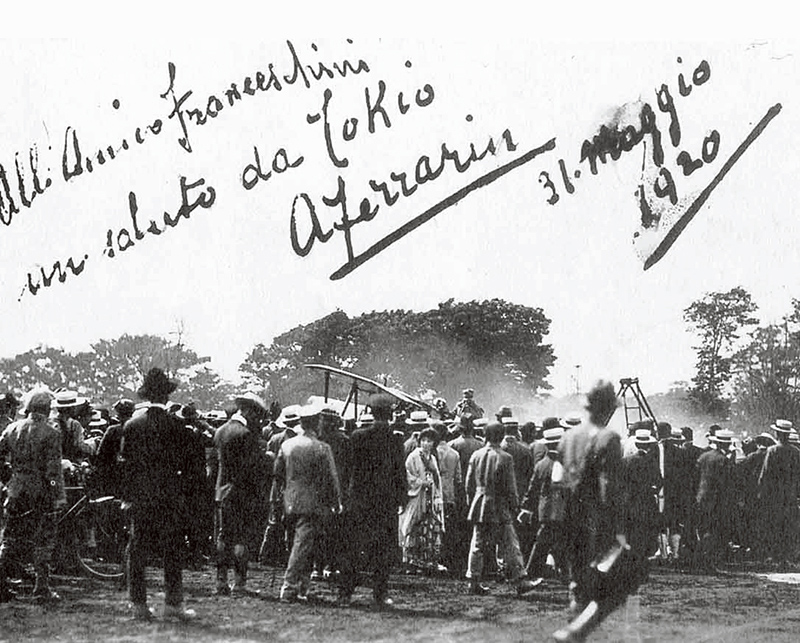 All' Amico Franceschini
un saluto da Tokio
A Ferrarin
31. Maggio
1920